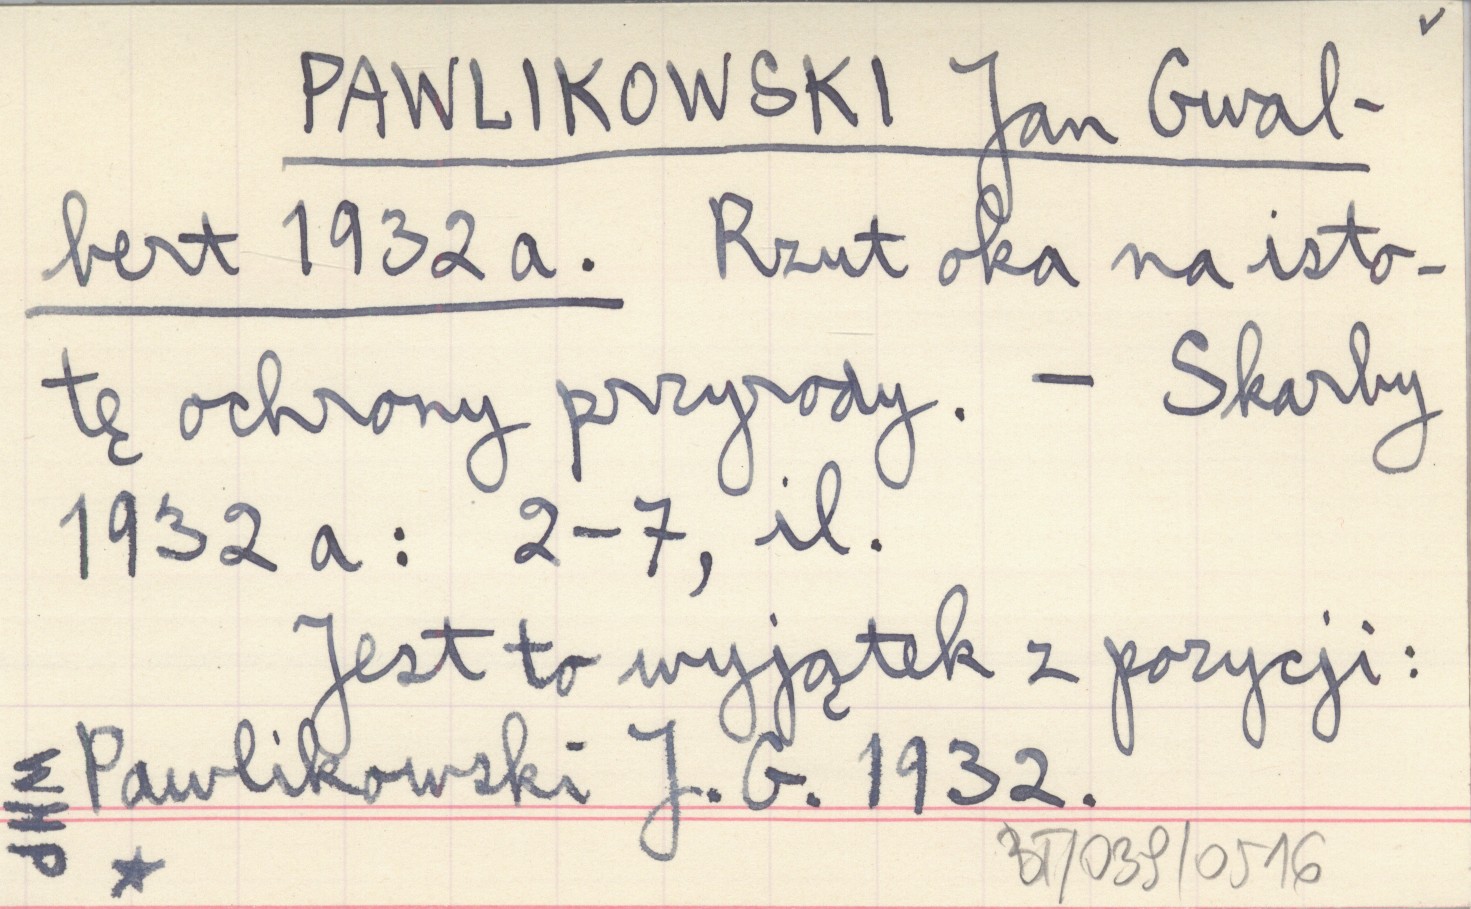 ✓
PAWLIKOWSKI Jan Gwal-
bert 1932a. Rzut oka na isto-
tę ochrony przyrody. – Skarby
1932a: 2–7, il.
Jest to wyjątek z pozycji:
Pawlikowski J. G. 1932.
WHP
★
BT/039/0516